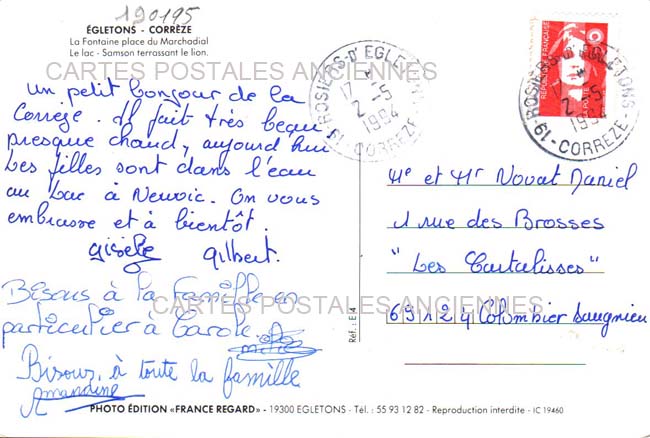 190195
ÉGLETONS - CORRÈZE
La Fontaine place du Marchadial
Le lac - Samson terrassant le lion.
CARTES POSTALES ANCIENNES
Un petit bonjour de la
Corrèze. Il fait très beau
presque chaud, aujourd'hui
Les filles sont dans l'eau
au Lac à Neuvic. On vous
embrasse et à bientôt.
Gisèle Gilbert.
Bisous à la famille en
particulier à Carole.
Bisous, à toute la famille
Amandine
PHOTO ÉDITION «FRANCE REGARD» - 19300 EGLETONS - Tél. : 55 93 12 82 - Reproduction interdite - IC 19460
Réf. : E 4
19 - ROSIERS-D'EGLETONS - CORREZE
17 H
2 - 5
1994
REPUBLIQUE FRANÇAISE
19 - ROSIERS-D'EGLETONS - CORREZE
17 H
2 - 5
1994
Me et Mr Novat Daniel
1 rue des Brosses
"Les Cartalisses"
69124 Colombier Saugnieu
CARTES POSTALES ANCIENNES